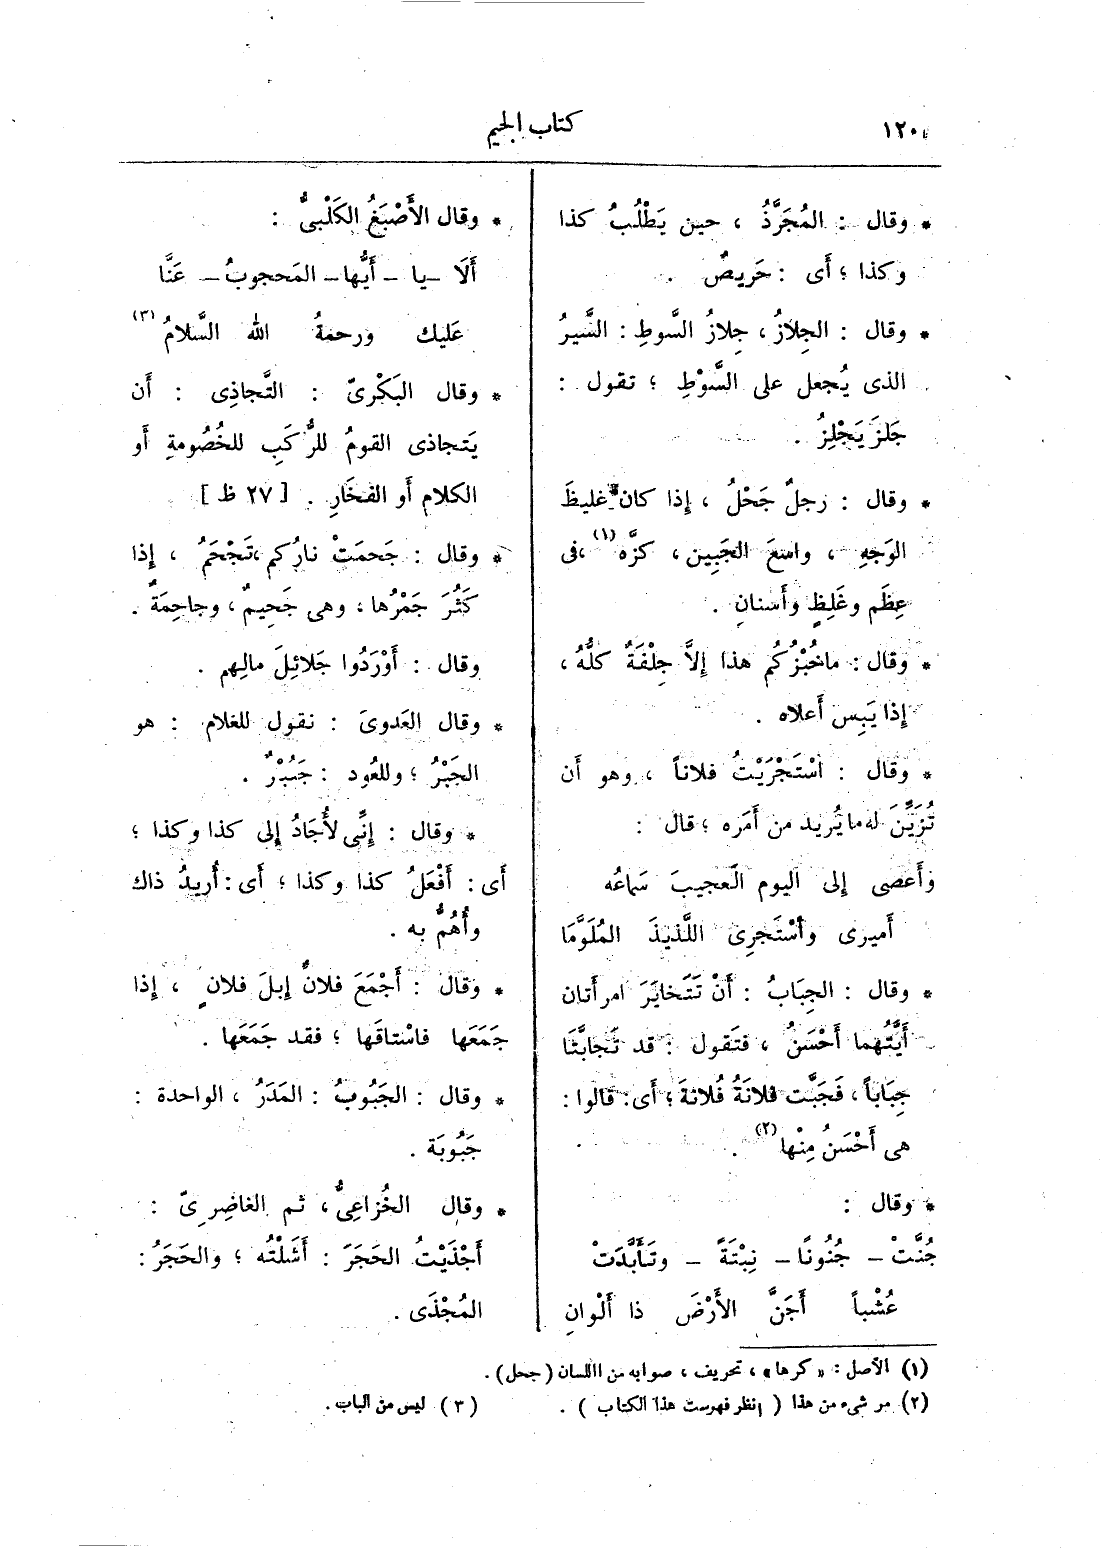 ١٢٠
كتاب الجيم
* وقال : المُجَرَّذُ ، حين يَطْلُبُ كذا
وكذا ؛ أى : حَريصٌ .
* وقال : الجِلازُ ، جِلازُ السَّوطِ : السَّيرُ
الذى يُجعل على السَّوْطِ ؛ تقول :
جَلَزَ يَجْلِزُ .
* وقال : رجلٌ جَحْلُ ، إذا كان غليظَ
الوَجهِ ، واسعَ الجَبين ، كزَّه (١) ، فى
عِظَم وغَلِظٍ وأَسنانِ .
* وقال : ماخُبْزُكُم هذا إلاَّ جِلْفَةٌ كلُّهُ ،
إذا يَبِس أَعلاه .
* وقال : اسْتَجْرَيْتُ فلاناً ، وهو أَن
تُزَيِّنَ له ما يُريد من أَمَره ؛ قال :
وأَعصى إلى اليوم العجيبَ سَماعُه
أَميرى وأَسْتَجرِى اللَّذيذَ المُلَوَّمَا
* وقال : الجِبَابُ : أَنْ تَتَخايَرَ امرأَتان
أَيَّتُهما أَحْسَنُ ، فتَقول : قد تَجابَّتَا
جِبَاباً ، فَجَبَّت فلانَةُ فُلانةَ ؛ أى : قالوا :
هى أَحْسَنُ مِنْها (٢) .
* وقال :
جُنَّتْ - جُنُونًا - نِبْتَةً - وتَأَبَّدَتْ
عُشْباً أَجَنَّ الأَرْضَ ذا أَلْوانِ
* وقال الأَصْبَغُ الكَلْبىُّ :
أَلَا - يا - أَيُّها - المَحجوبُ - عَنَّا
عَليك ورحمةُ الله السَّلامُ (٣)
* وقال البَكْرىّ : التَّجاذِى : أَن
يَتجاذى القومُ للرُّكَبِ للخُصُومةِ أَو
الكلام أَو الفخَارِ . [ ٢٧ ظ ]
* وقال : جَحمَتْ نارُكم ، تَجْحَمُ ، إذا
كَثُرَ جَمْرُها ، وهى جَحيمٌ ، وجاحِمَةٌ .
وقال : أَوْرَدُوا جَلائِلَ مالِهم .
* وقال العَدوىّ : نقول للغلام : هو
الجَبْرُ ؛ وللعُود : جَبْرٌ .
* وقال : إنِّى لأُجَادُ إلى كذا وكذا ؛
أى : أَفْعَلُ كذا وكذا ؛ أى : أُريدُ ذاك
وأَهُمُّ به .
* وقال : أَجْمَعَ فلانٌ إبلَ فلانٍ ، إذا
جَمَعَها فاسْتاقَها ؛ فقد جَمَعَها .
* وقال : الجَبُوبُ : المَدَرُ ، الواحدة :
جَبُوبَة .
* وقال الخُزاعِىُّ ، ثم الغاضِرِىّ :
أَجْذَيْتُ الحَجَرَ : أَشَلْتُه ؛ والحَجَرُ :
المُجْذَى .
(١) الأصل : « كرها » ، تحريف ، صوابه من اللسان (جحل) .
(٢) مر شىء من هذا ( انظر فهرست هذا الكتاب ) .
(٣) ليس من الباب .